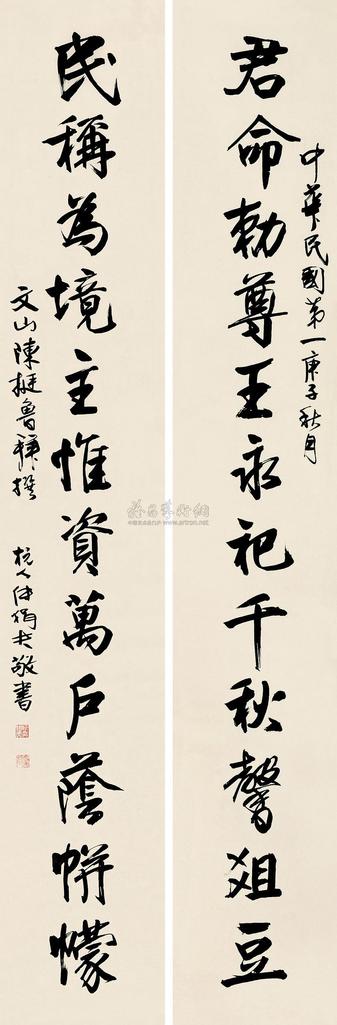 中華民國第一庚子秋月
君命勅尊王永祀千秋馨爼豆
民稱為境主惟資萬戶蔭帡幪
文山陳挺魯拜撰
杭人敬書
www.artron.net